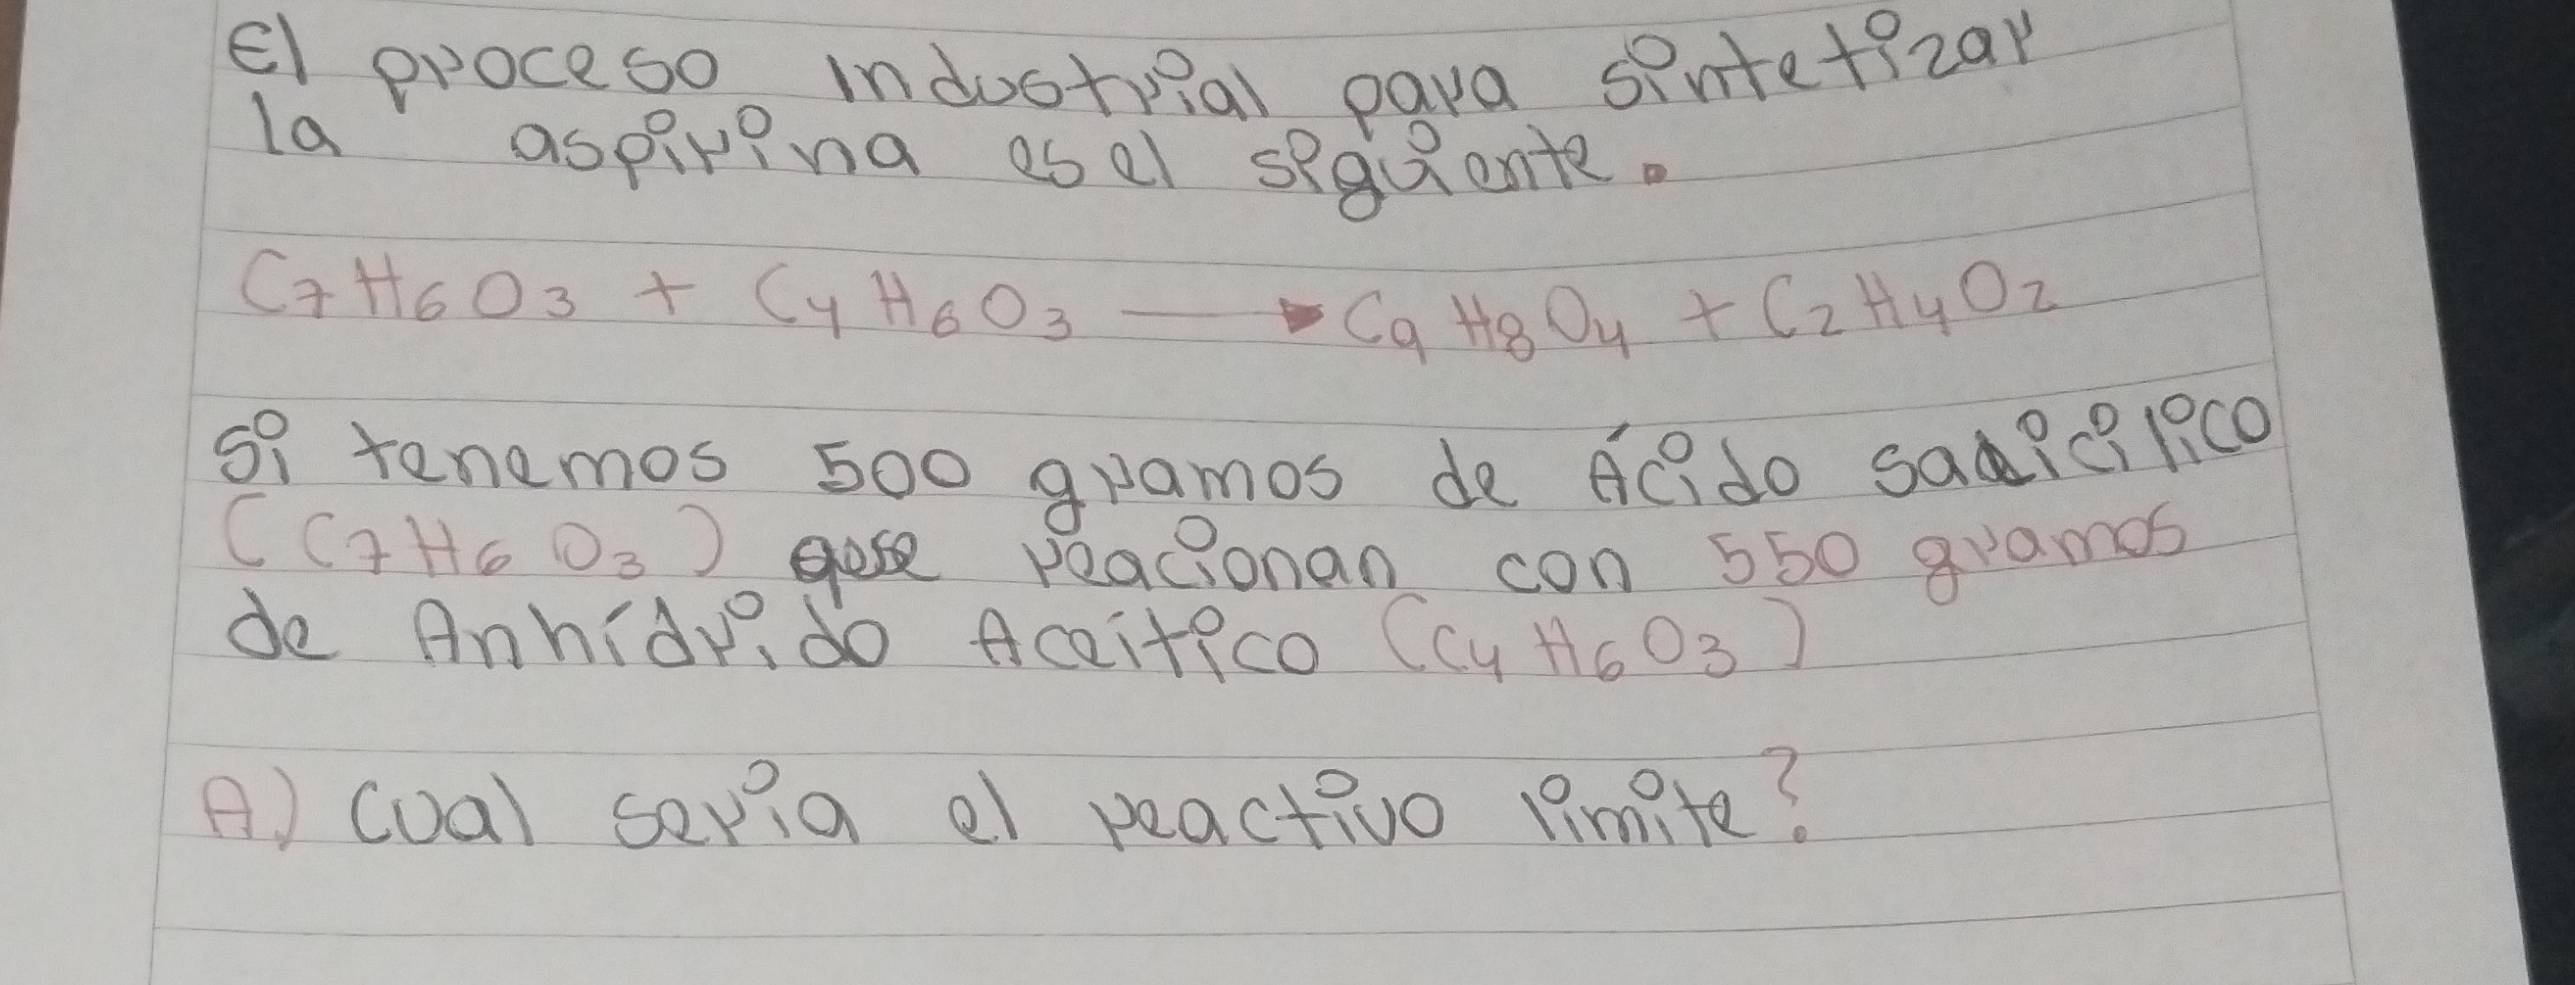 El proceso industrial para sintetizar
la aspirina es el siguiente.
C7H6O3 + C4H6O3 → C9H8O4 + C2H4O2
Si tenemos 500 gramos de Ácido salicilico
(C7H6O3) reacionan con 550 gramos
de Anhídrido Aceitico (C4H6O3)
A) Cual seria el reactivo limite?